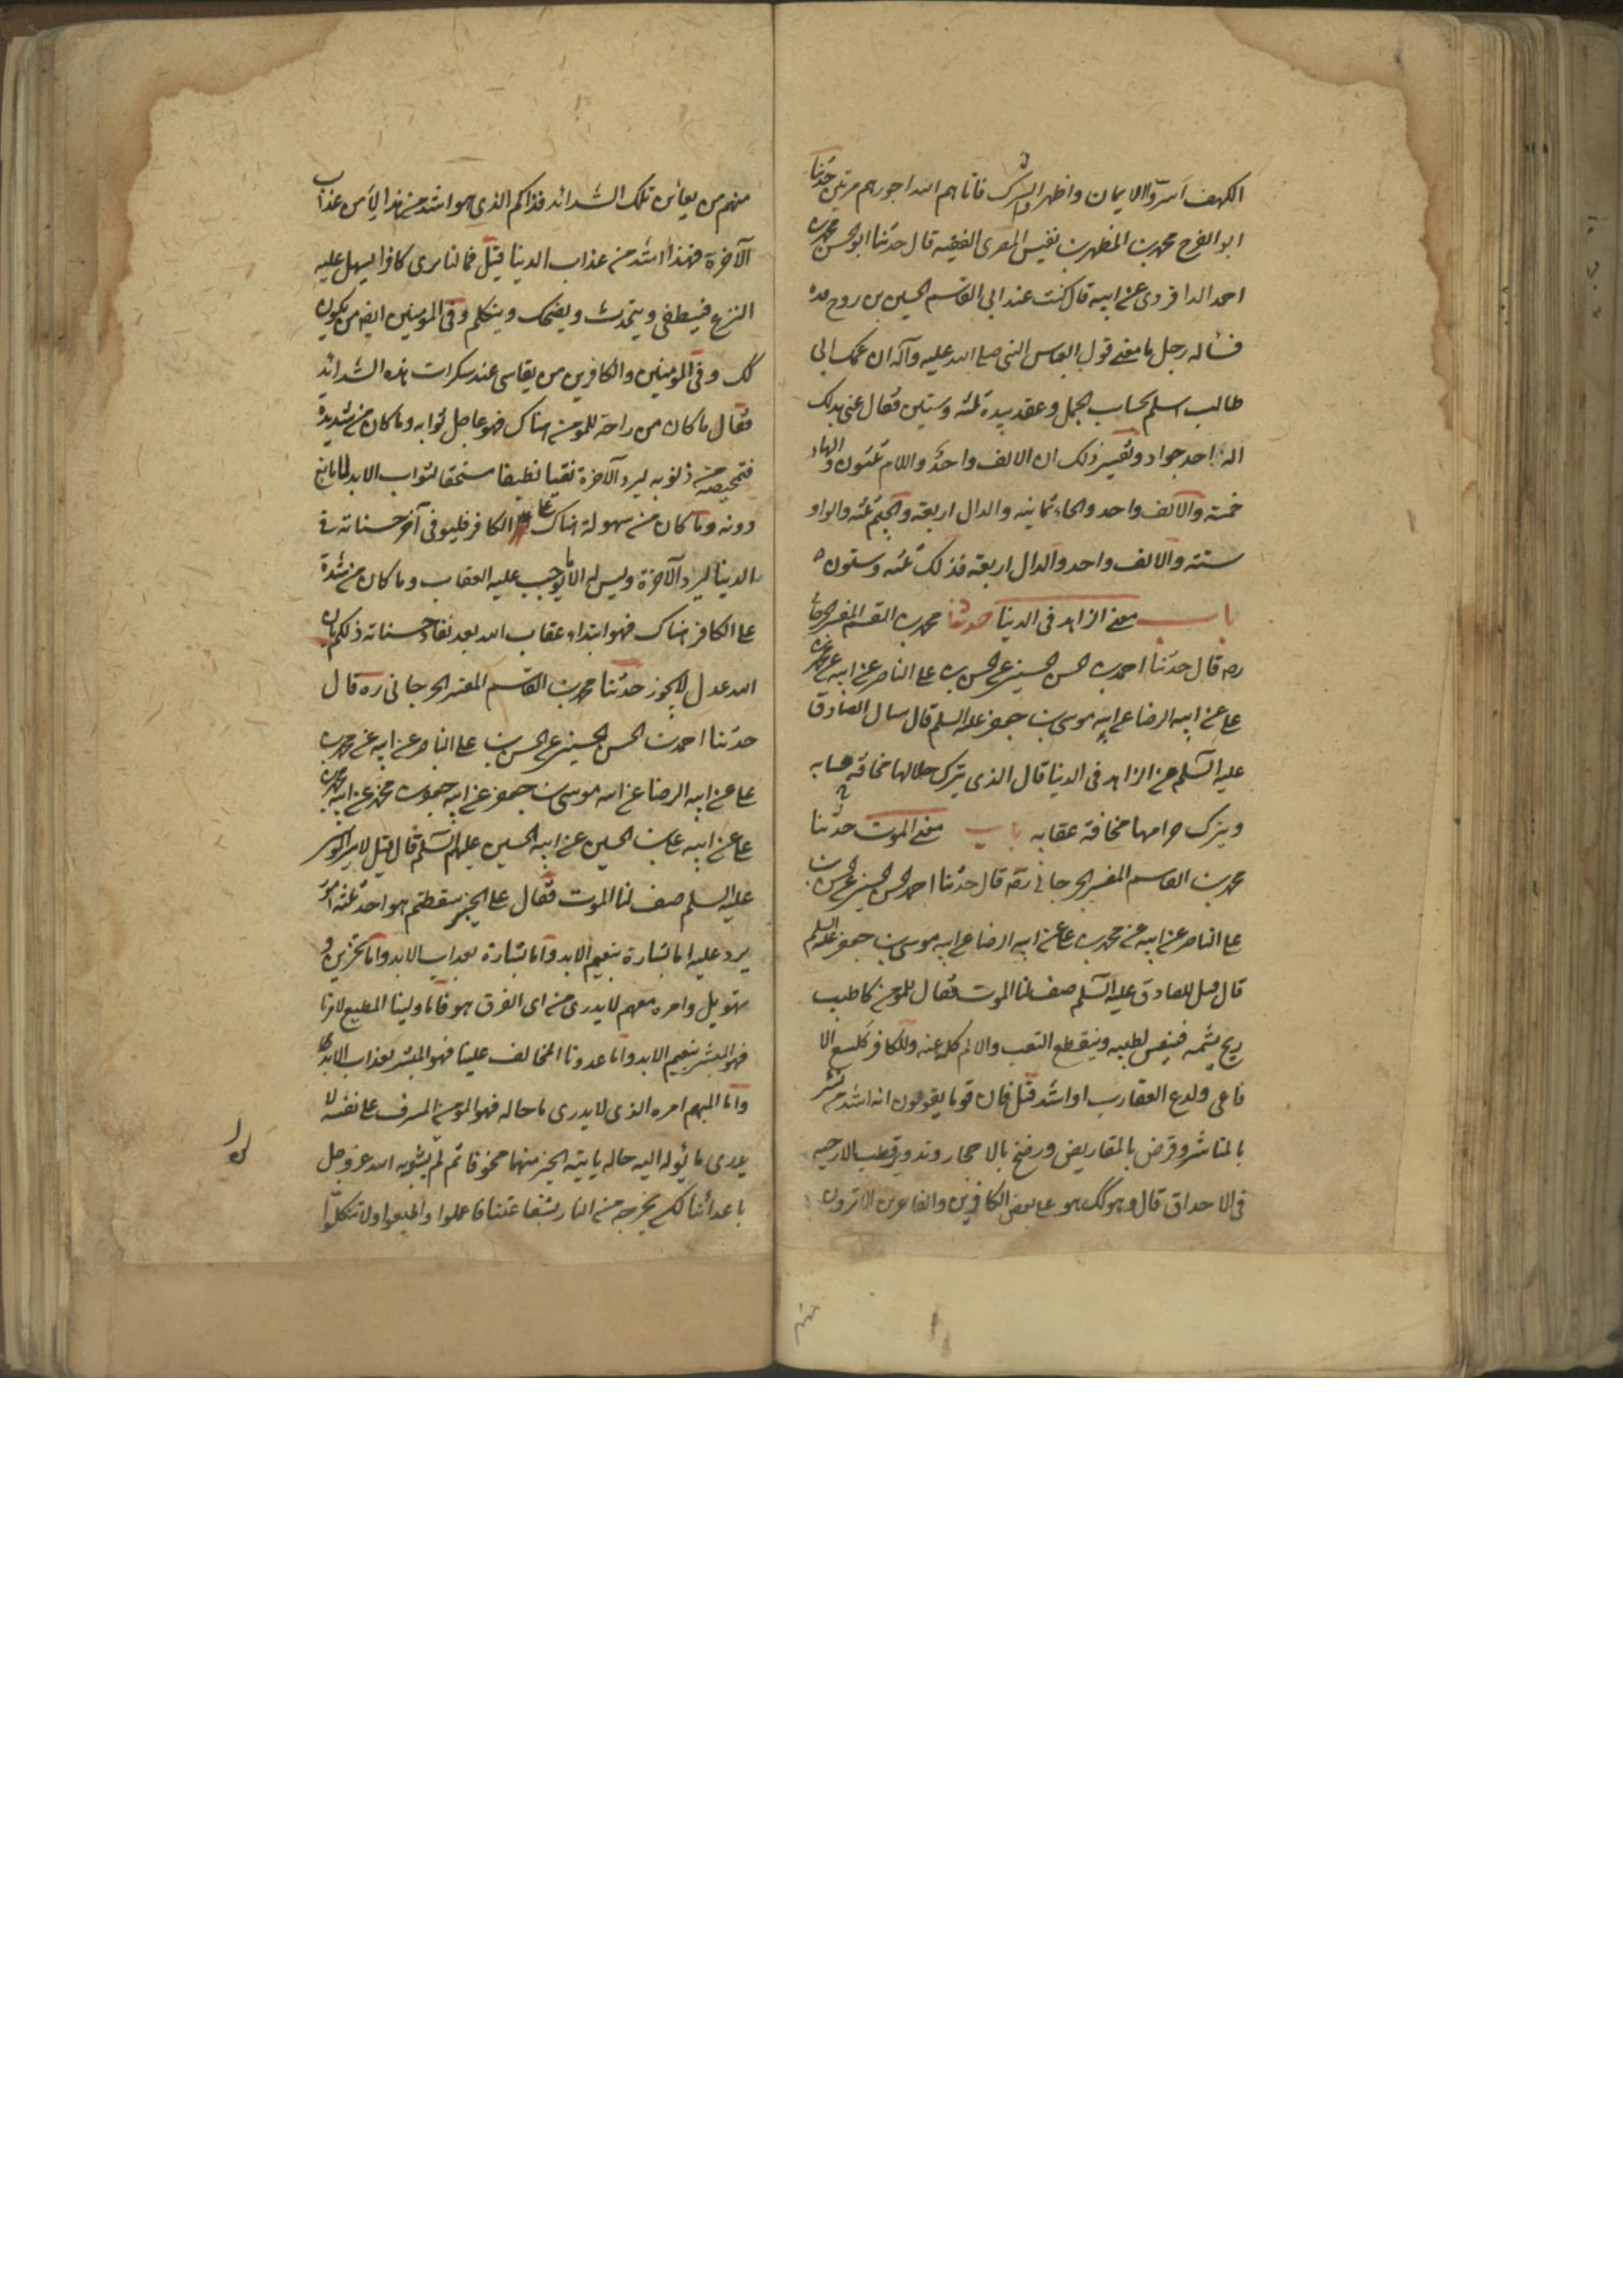 الكهف اسرّوا الايمان واظهروا الشرك فآتاهم الله اجورهم مرتين حدثنا
ابو الفرج محمد بن المظفر بن نفيس المصرى الفقيه قال حدثنا ابو الحسن محمد بن
احمد الداودى عن ابيه قال كنت عند ابى القاسم الحسين بن روح قده
فسأله رجل ما معنى قول العباس النبى صلى الله عليه وآله ان عمك ابى
طالب اسلم بحساب الجمل وعقد بيده ثلثه وستين فقال عنى بذلك
اله احد جواد وتفسير ذلك ان الالف واحد واللام ثلثون والهاء
خمسة والالف واحد والحاء ثمانيه والدال اربعة والجيم ثلثه والواو
ستة والالف واحد والدال اربعة فذلك ثلثه وستون
باب معنى الزاهد فى الدنيا حدثنا محمد بن القسم المفسر الجرجانى
ره قال حدثنا احمد بن الحسن الحسينى عن الحسن بن على الناصر عن ابيه عن محمد بن
على عن ابيه الرضا عن ابيه موسى بن جعفر عليه السلم قال سال الصادق
عليه السلم عن الزاهد فى الدنيا قال الذى يترك حلالها مخافة حسابه
ويترك حرامها مخافة عقابه باب معنى الموت حدثنا
محمد بن القاسم المفسر الجرجانى رضه قال حدثنا احمد بن الحسن الحسينى عن الحسن بن
على الناصر عن ابيه عن محمد بن على عن ابيه الرضا عن ابيه موسى بن جعفر عليه السلم
قال قيل للصادق عليه السلم صف لنا الموت فقال للمومن كاطيب
ريح يشمه فينعس لطيبه وينقطع التعب والالم كله عنه وللكافر كلسع الا
فاعى ولدغ العقارب او اشد قيل فان قوما يقولون انه اشد من نشر
بالمناشر وقرض بالمقاريض ورضخ بالاحجار وتدوير قطب الارحيه
فى الاحداق قال وهو كك هو على بعض الكافرين والفاجرين الا ترون
منهم
منهم من يعاين تلك الشدائد فذاكم الذى هو اشد من هذا الا من عذاب
الآخرة فهذا اشد من عذاب الدنيا قيل فما لنا نرى كافرا يسهل عليه
النزع فينطفى ويتحدث ويضحك ويتكلم وفى المومنين ايضا من يكون
كك وفى المومنين والكافرين من يقاسى عند سكرات هذه الشدائد
فقال ما كان من راحة للمومن هناك فهو عاجل ثوابه وما كان من شديدة
فتمحيصه من ذنوبه ليرد الآخرة نقيا نظيفا مستحقا لثواب الابد لا مانع
دونه وما كان من سهولة هناك على الكافر فليوفى آخر حسناته فى
الدنيا ليرد الآخرة وليس له الا ما يوجب عليه العقاب وما كان من شدة
على الكافر هناك فهو ابتداء عقاب الله بعد نفاد حسناته ذلكم بان
الله عدل لا يجوز حدثنا محمد بن القاسم المفسر الجرجانى ره قال
حدثنا احمد بن الحسن الحسينى عن الحسن بن على الناصر عن ابيه عن محمد بن
على عن ابيه الرضا عن ابيه موسى بن جعفر عن ابيه جعفر بن محمد عن ابيه محمد بن
على عن ابيه على بن الحسين عن ابيه الحسين عليهم السلم قال قيل لامير المومنين
عليه السلم صف لنا الموت فقال على الخبير سقطتم هو احد ثلثه امور
يرد عليه اما بشارة بنعيم الابد واما بشارة بعذاب الابد واما تحزين و
تهويل وامره مبهم لا يدرى من اى الفرق هو فاما ولينا المطيع لامرنا
فهو المبشر بنعيم الابد واما عدونا المخالف علينا فهو المبشر بعذاب الابد
واما المبهم امره الذى لا يدرى ما حاله فهو المومن المسرف على نفسه لا
يدرى ما يؤل اليه حاله ياتيه الخبر مبهما مخوفا ثم لم يسويه الله عز وجل
باعدائنا لكن يخرجه من النار بشفاعتنا فاعملوا واطيعوا ولا تتكلوا